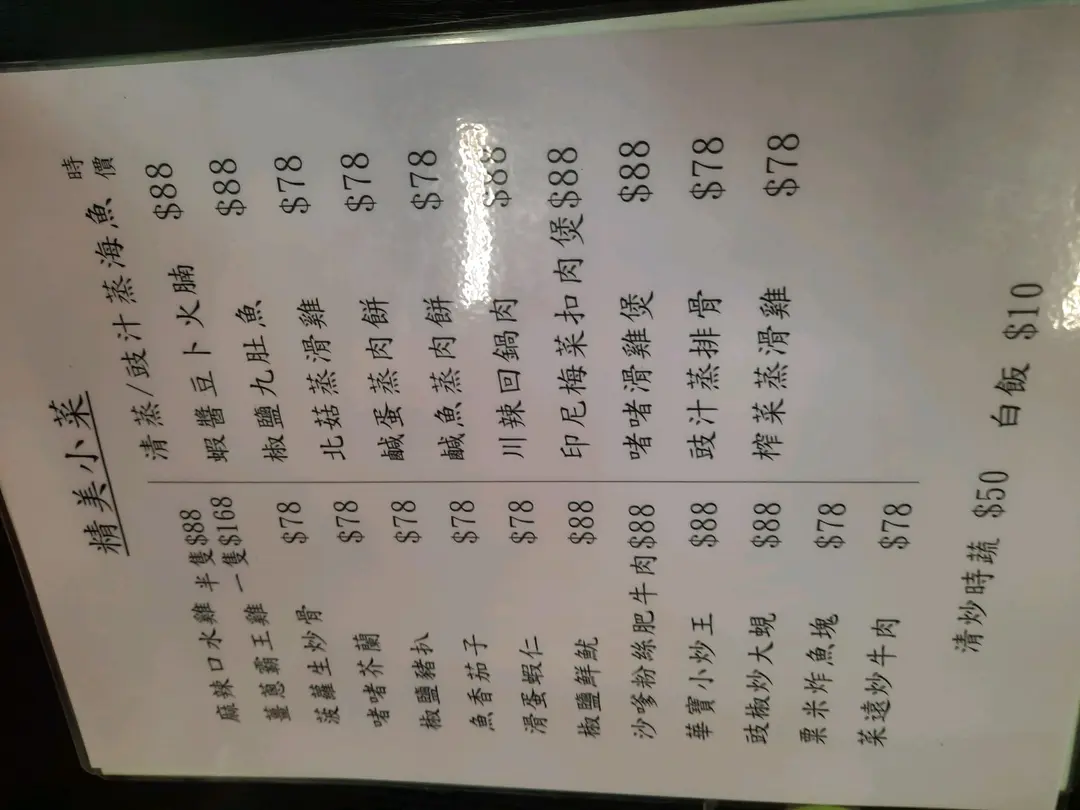 精美小菜
麻辣口水雞 半隻$88
薑蔥霸王雞 一隻$168
菠蘿生炒骨 $78
啫啫芥蘭 $78
椒鹽豬扒 $78
魚香茄子 $78
滑蛋蝦仁 $78
椒鹽鮮魷 $88
沙嗲粉絲肥牛肉$88
華寶小炒王 $88
豉椒炒大蜆 $88
粟米炸魚塊 $78
菜遠炒牛肉 $78
清蒸/豉汁蒸海魚 時價
蝦醬豆卜火腩 $88
椒鹽九肚魚 $88
北菇蒸滑雞 $78
鹹蛋蒸肉餅 $78
鹹魚蒸肉餅 $78
川辣回鍋肉 $88
印尼梅菜扣肉煲$88
啫啫滑雞煲 $88
豉汁蒸排骨 $78
榨菜蒸滑雞 $78
清炒時蔬 $50 白飯 $10